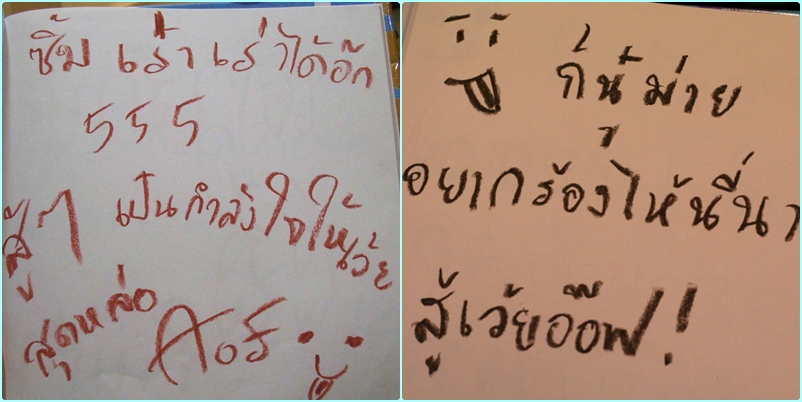 ซิ้ม เร่า เร่าได้อีก
555
สู้ๆ เป็นกำลังใจให้เว้ย
สุดหล่อ
ก็นู๋ม่าย
อยากร้องไห้นี่นา
สู้เว้ยอ๊อฟ!